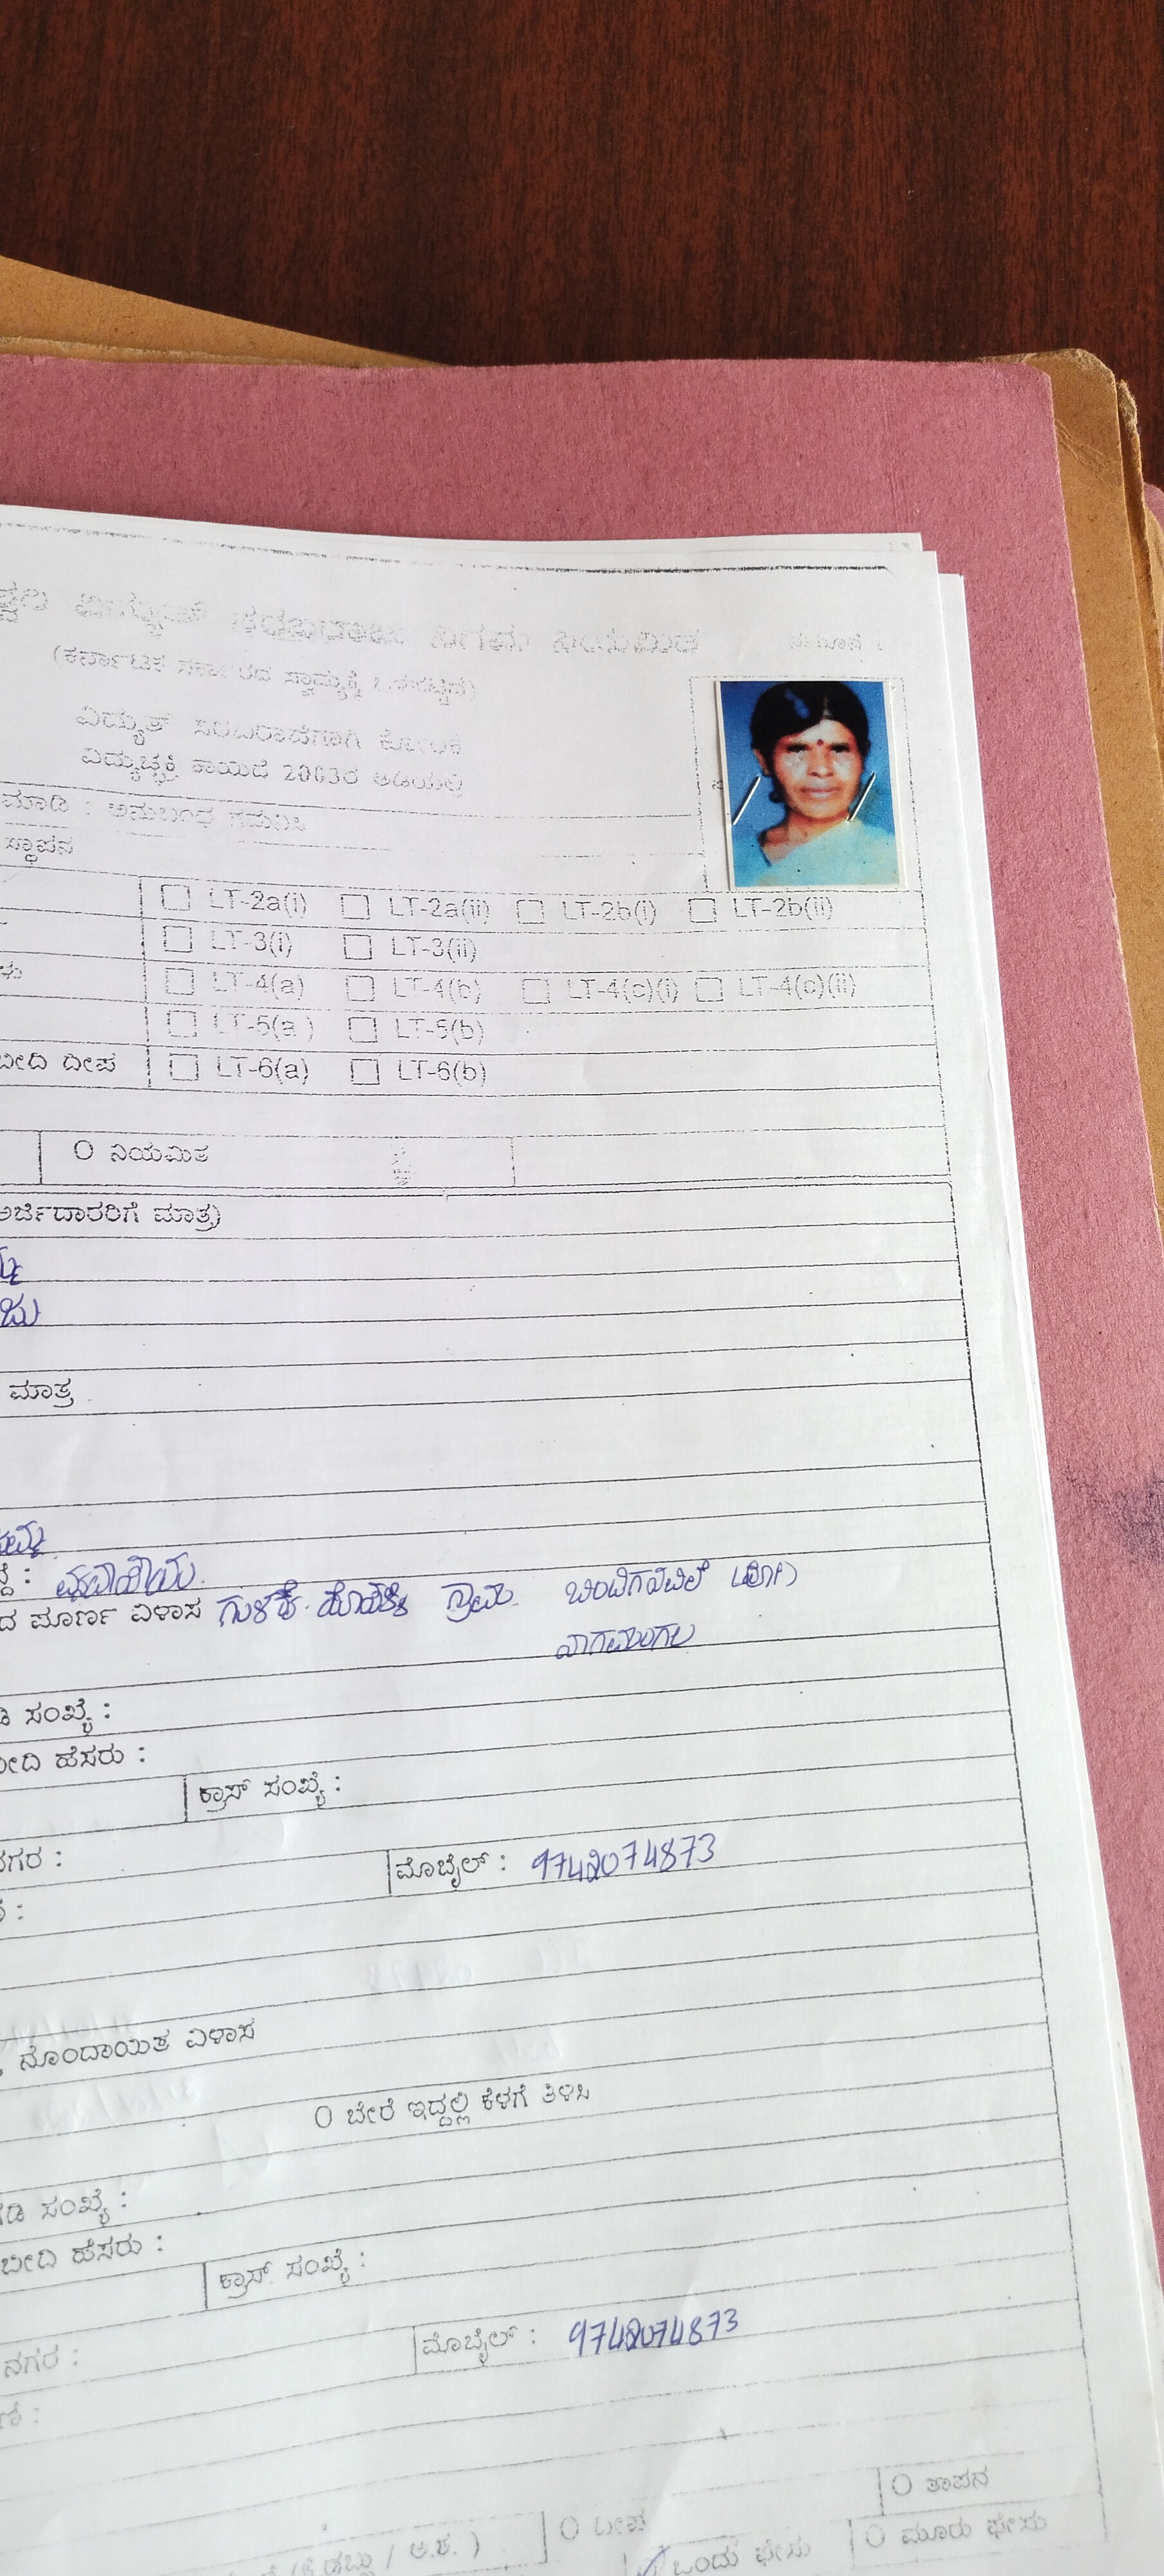 ವಿದ್ಯುತ್ ಸರಬರಾಜು ನಿಗಮ ನಿಯಮಿತ ನಮೂನೆ 1
(ಕರ್ನಾಟಕ ಸರ್ಕಾರದ ಸ್ವಾಮ್ಯಕ್ಕೆ ಒಳಪಟ್ಟಿದೆ)
ವಿದ್ಯುತ್ ಸರಬರಾಜಿಗಾಗಿ ಕೋರಿಕೆ
ವಿದ್ಯುಚ್ಛಕ್ತಿ ಕಾಯಿದೆ 2003ರ ಅಡಿಯಲ್ಲಿ
ಮಾಡಿ : ಅನುಬಂಧ ಗಮನಿಸಿ
ಸ್ಥಾಪನ
LT-2a(i) LT-2a(ii) LT-2b(i) LT-2b(ii)
LT-3(i) LT-3(ii)
LT-4(a) LT-4(b) LT-4(c)(i) LT-4(c)(ii)
LT-5(a) LT-5(b)
ಬೀದಿ ದೀಪ LT-6(a) LT-6(b)
O ನಿಯಮಿತ
ಅರ್ಜಿದಾರರಿಗೆ ಮಾತ್ರ)
ಮಾತ್ರ
ವ್ಯವಸಾಯ
ದ ಪೂರ್ಣ ವಿಳಾಸ ಗ್ರಾಮ ಬಿಂಡಿಗನವಿಲೆ (ಹೋ)
ನಾಗಮಂಗಲ
ಡಿ ಸಂಖ್ಯೆ :
ಬೀದಿ ಹೆಸರು :
ಕ್ರಾಸ್ ಸಂಖ್ಯೆ :
ನಗರ : ಮೊಬೈಲ್ : 9742074873
ನೊಂದಾಯಿತ ವಿಳಾಸ
O ಬೇರೆ ಇದ್ದಲ್ಲಿ ಕೆಳಗೆ ತಿಳಿಸಿ
ಗಡಿ ಸಂಖ್ಯೆ :
ಬೀದಿ ಹೆಸರು :
ಕ್ರಾಸ್ ಸಂಖ್ಯೆ :
ನಗರ : ಮೊಬೈಲ್ : 9742074873
O ದೀಪ O ತಾಪನ
ಒಂದು ಫೇಸು O ಮೂರು ಫೇಸು